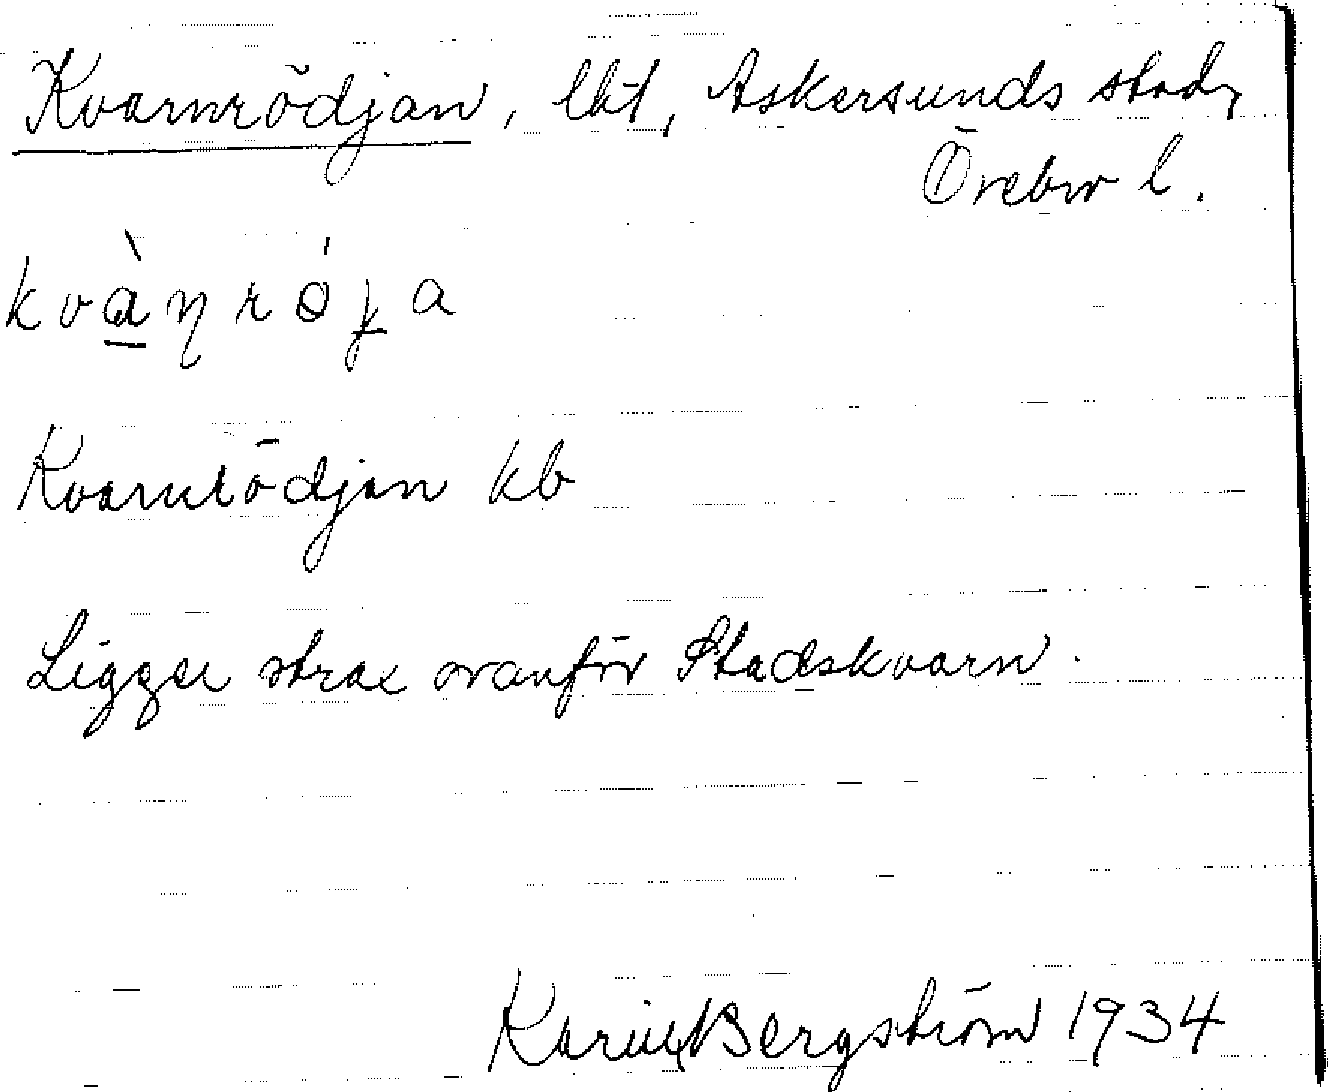 Kvarnrödjan, lht, Askersunds stad,
Örebro l.
kvàɳrǿɟa
Kvarnrödjan kb
Ligger strax ovanför Stadskvarn.
Karin Bergström 1934